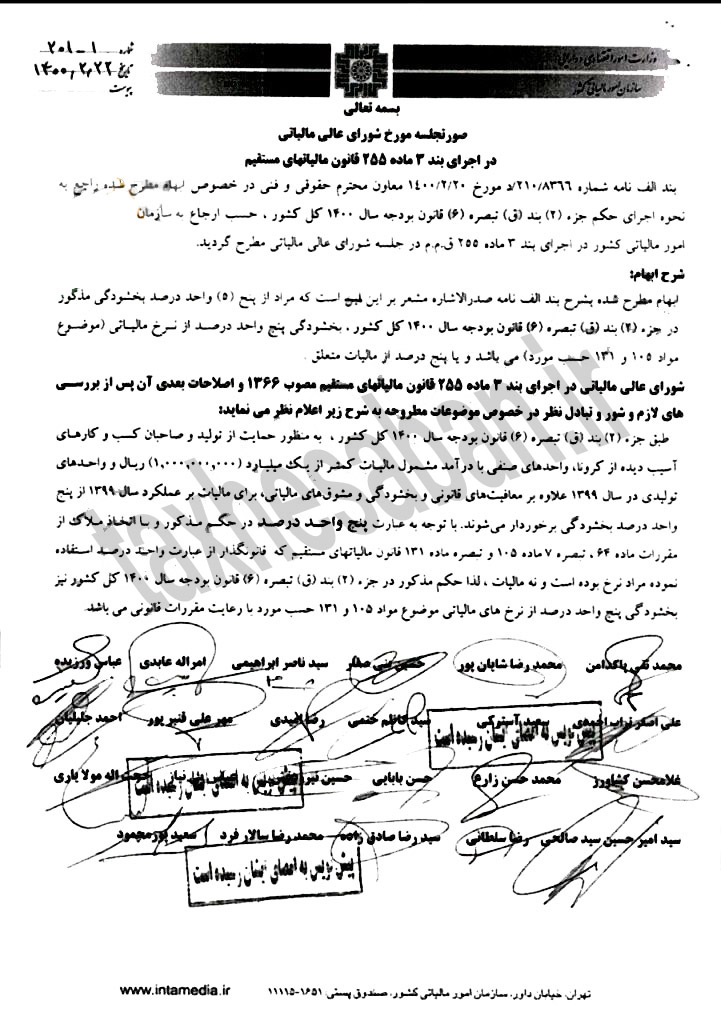 وزارت امور اقتصادی و دارایی
سازمان امور مالیاتی کشور
شماره ۲۰۱-۱
تاریخ ۱۴۰۰,۲,۲۲
پیوست
بسمه تعالی
صورتجلسه مورخ شورای عالی مالیاتی
در اجرای بند ۳ ماده ۲۵۵ قانون مالیاتهای مستقیم
بند الف نامه شماره ۲۱۰/۸۳۶۶/د مورخ ۱۴۰۰/۲/۲۰ معاون محترم حقوقی و فنی در خصوص ابهام مطرح شده راجع به
نحوه اجرای حکم جزء (۲) بند (ق) تبصره (۶) قانون بودجه سال ۱۴۰۰ کل کشور ، حسب ارجاع به سازمان
امور مالیاتی کشور در اجرای بند ۳ ماده ۲۵۵ ق.م.م در جلسه شورای عالی مالیاتی مطرح گردید.
شرح ابهام:
ابهام مطرح شده بشرح بند الف نامه صدرالاشاره مشعر بر این است که مراد از پنج (۵) واحد درصد بخشودگی مذکور
در جزء (۲) بند (ق) تبصره (۶) قانون بودجه سال ۱۴۰۰ کل کشور ، بخشودگی پنج واحد درصد از نرخ مالیاتی (موضوع
مواد ۱۰۵ و ۱۳۱ حسب مورد) می باشد و یا پنج درصد از مالیات متعلق .
شورای عالی مالیاتی در اجرای بند ۳ ماده ۲۵۵ قانون مالیاتهای مستقیم مصوب ۱۳۶۶ و اصلاحات بعدی آن پس از بررسی
های لازم و شور و تبادل نظر در خصوص موضوعات مطروحه به شرح زیر اعلام نظر می نماید:
طبق جزء (۲) بند (ق) تبصره (۶) قانون بودجه سال ۱۴۰۰ کل کشور ، به منظور حمایت از تولید و صاحبان کسب و کارهای
آسیب دیده از کرونا، واحدهای صنفی با درآمد مشمول مالیات کمتر از یک میلیارد (۱,۰۰۰,۰۰۰,۰۰۰) ریال و واحدهای
تولیدی در سال ۱۳۹۹ علاوه بر معافیت‌های قانونی و بخشودگی و مشوق‌های مالیاتی، برای مالیات بر عملکرد سال ۱۳۹۹ از پنج
واحد درصد بخشودگی برخوردار می‌شوند. با توجه به عبارت پنج واحد درصد در حکم مذکور و با اتخاذ ملاک از
مقررات ماده ۶۴ ، تبصره ۷ ماده ۱۰۵ و تبصره ماده ۱۳۱ قانون مالیاتهای مستقیم که قانونگذار از عبارت واحد درصد استفاده
نموده مراد نرخ بوده است و نه مالیات ، لذا حکم مذکور در جزء (۲) بند (ق) تبصره (۶) قانون بودجه سال ۱۴۰۰ کل کشور نیز
بخشودگی پنج واحد درصد از نرخ های مالیاتی موضوع مواد ۱۰۵ و ۱۳۱ حسب مورد با رعایت مقررات قانونی می باشد.
taxhesaban.ir
محمد تقی پاکدامن محمد رضا شایان پور سید ناصر ابراهیمی امراله عابدی عباس ورزیده
علی اصغر تراب احمدی سعید آسترکی سید کاظم ختمی رضا امیدی مهر علی قنبر پور احمد جلیلیان
پیش نویس به امضای ایشان رسیده است
غلامحسن کشاورز محمد حسن زارع حسن بابایی حسین حجت اله مولا یاری
پیش نویس به امضای ایشان رسیده است
سید امیر حسین سید صالحی رضا سلطانی سید رضا صادق زاده محمد رضا سالار فرد سعید پور محمود
پیش نویس به امضای ایشان رسیده است
تهران، خیابان داور، سازمان امور مالیاتی کشور، صندوق پستی: ۱۶۵۱-۱۱۱۱۵ www.intamedia.ir